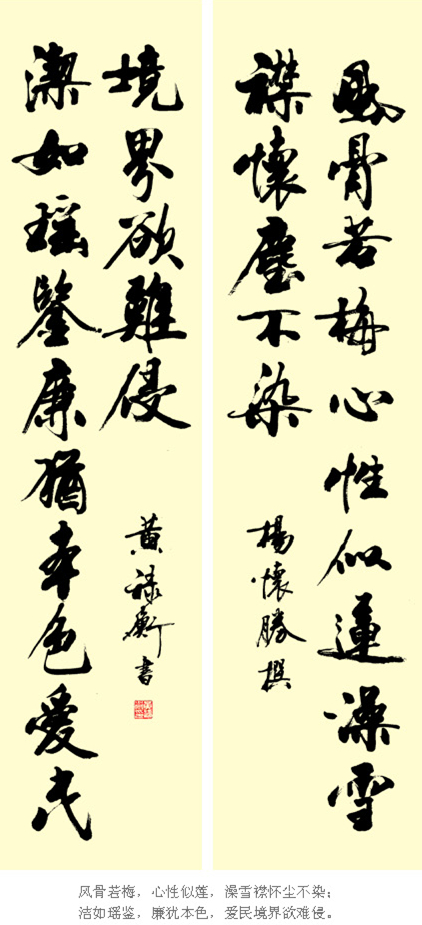 風骨若梅心性似蓮澡雪
襟懷塵不染
楊懷勝撰
潔如瑶鑒廉猶本色愛民
境界欲難侵
黄禄衡書
风骨若梅，心性似莲，澡雪襟怀尘不染；
洁如瑶鉴，廉犹本色，爱民境界欲难侵。